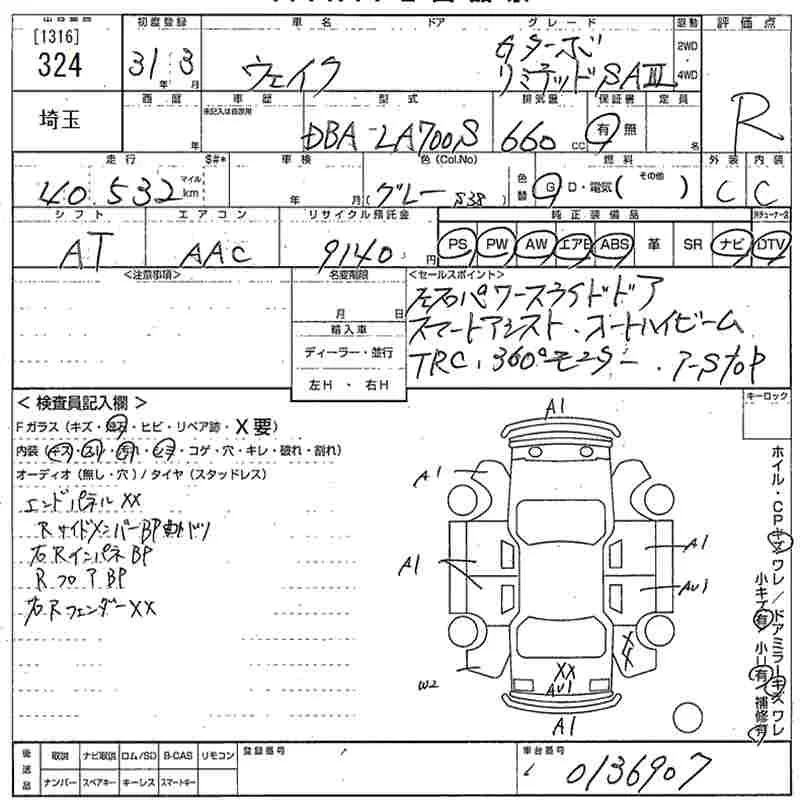 [1316]
324
埼玉
初度登録
31年 3月
車名
ドア
グレード
ウェイク
Gターボ
リミテッドSAⅢ
駆動
2WD
4WD
評価点
R
西暦
年
車歴
未記入は自家用
型式
DBA-LA700S
排気量
660 cc
保証書
有 無
定員
名
走行
$#*
40,532
マイル
km
車検
年 月
色(Col.No)
グレー S38
色替
燃料
G・D・電気( その他 )
外装
C
内装
C
シフト
AT
エアコン
AAC
リサイクル預託金
9140 円
純正装備品
PS PW AW エアB ABS 革 SR ナビ DTV
<注意事項>
名変期限
月 日
輸入車
ディーラー・並行
左H・右H
<セールスポイント>
左右パワースライドドア
スマートアシスト・オートハイビーム
TRC、360°モニター、アーStop
キーロック
<検査員記入欄>
Fガラス(キズ・飛石・ヒビ・リペア跡・X要)
内装(キズ・スリ・汚れ・シミ・コゲ・穴・キレ・破れ・割れ)
オーディオ(無し・穴)/タイヤ(スタッドレス)
エンドパネルXX
RサイドメンバーBP
右RインパネBP
RフロアBP
右RフェンダーXX
A1
A1
A1
A1
AU1
XX
W2
XX
AU1
A1
ホイル・CPキズワレ/ドアミラーキズワレ
小キズ有 小リ有 補修有
後送品
取説 ナビ取説 ロム/SD B-CAS リモコン
ナンバー スペアキー キーレス スマートキー
登録番号
車台番号
0136907